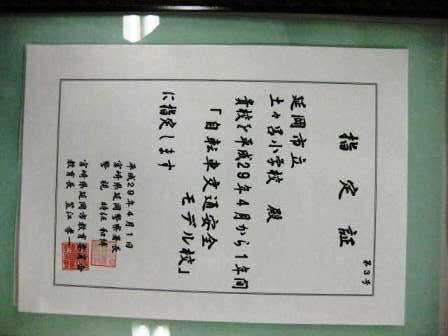 指定証
第3号
延岡市立
土々呂小学校 殿
貴校を平成29年4月から1年間
「自転車交通安全
モデル校」
に指定します
平成29年4月1日
宮崎県延岡警察署長
警視 時任 和博
宮崎県延岡市教育委員会
教育長